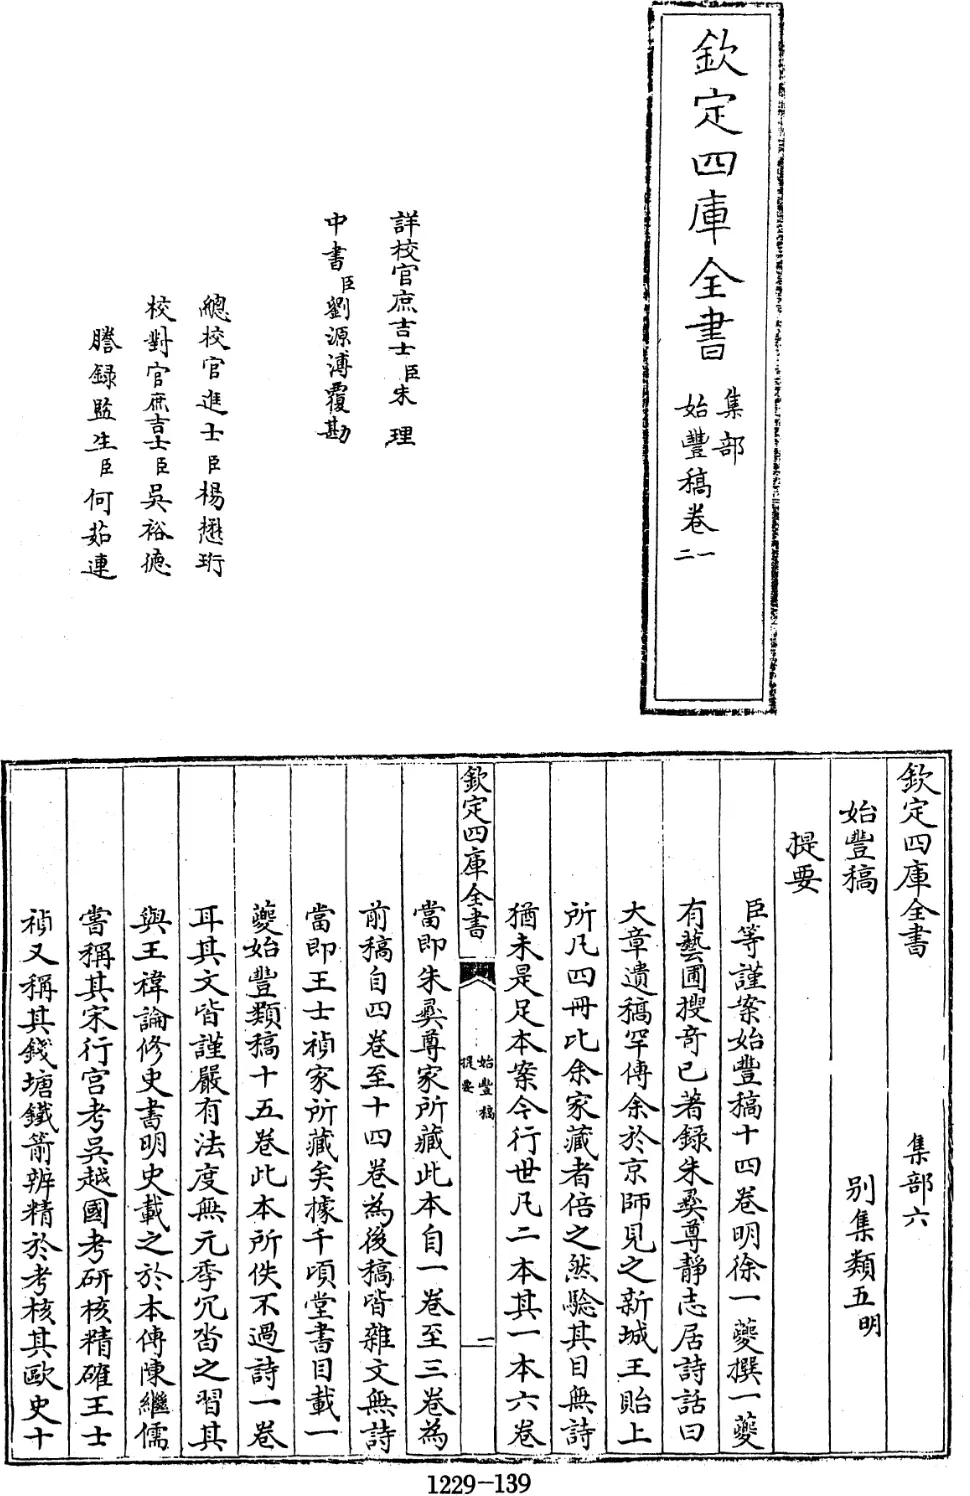 欽定四庫全書
集部
始豐稿卷一
二
詳校官庶吉士臣朱理
中書臣劉源溥覆勘
總校官進士臣楊懋珩
校對官庶吉士臣吳裕德
謄錄監生臣何茹連
欽定四庫全書 集部六
始豐稿 別集類五明
提要
臣等謹案始豐稿十四卷明徐一夔撰一夔
有藝圃搜奇已著錄朱彝尊靜志居詩話曰
大章遺稿罕傳余於京師見之新城王貽上
所凡四冊比余家藏者倍之然驗其目無詩
猶未是足本案今行世凡二本其一本六卷
欽定四庫全書 始豐稿提要 一
當即朱彝尊家所藏此本自一卷至三卷為
前稿自四卷至十四卷為後稿皆雜文無詩
當即王士禎家所藏矣據千頃堂書目載一
夔始豐類稿十五卷此本所佚不過詩一卷
耳其文皆謹嚴有法度無元季冗沓之習其
與王禕論修史書明史載之於本傳陳繼儒
嘗稱其宋行宮考吳越國考研核精確王士
禎又稱其錢塘鐵箭辨精於考核其歐史十
1229-139